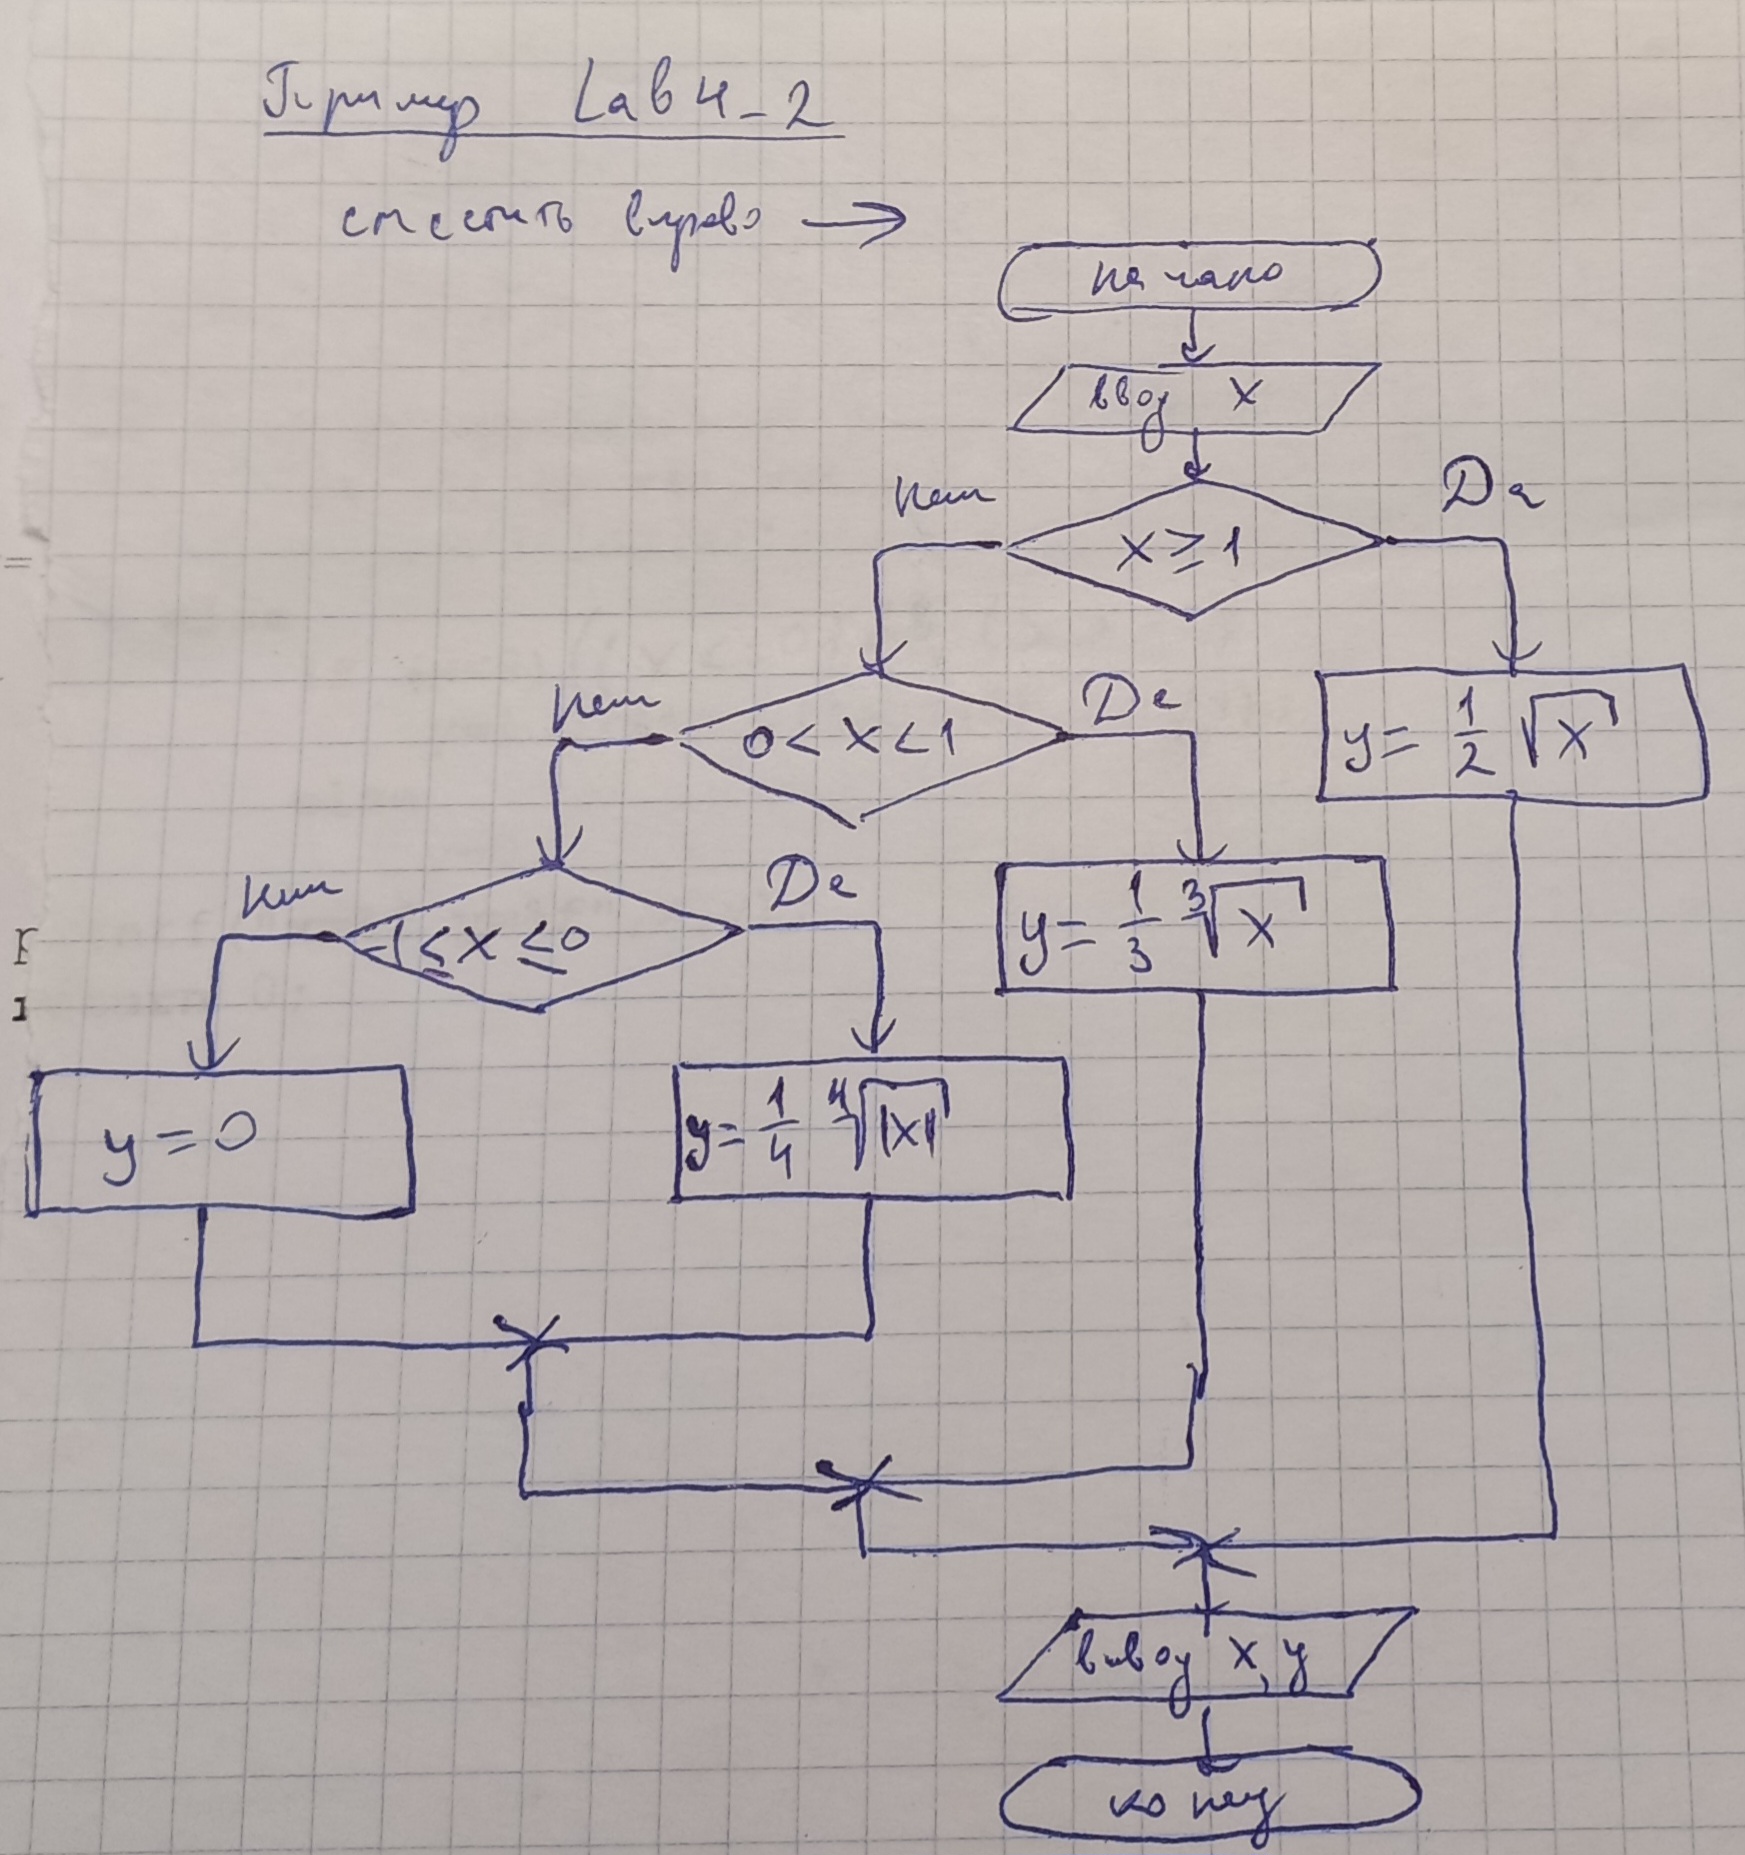 Пример Lab 4-2
сместить вправо →
начало
ввод x
нет
Да
x ≥ 1
нет
Да
0 < x < 1
y = 1/2 √x
нет
Да
-1 ≤ x ≤ 0
y = 1/3 ∛x
y = 0
y = 1/4 ∜|x|
вывод x, y
конец